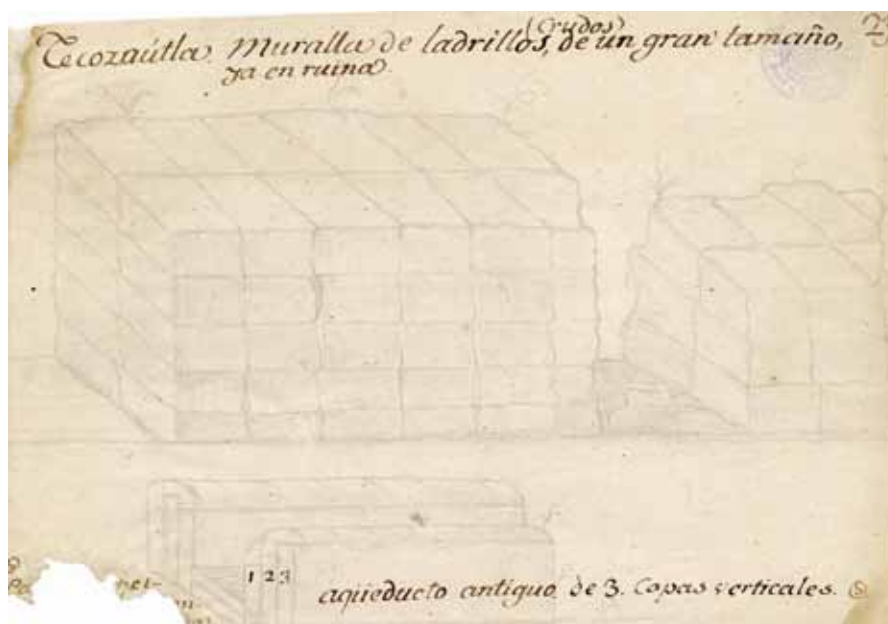 (Crudos)
Tecozaútla. Muralla de ladrillos, de un gran tamaño,
ya en ruina.
1 2 3
aqüeducto antiguo de 3. Capas verticales.